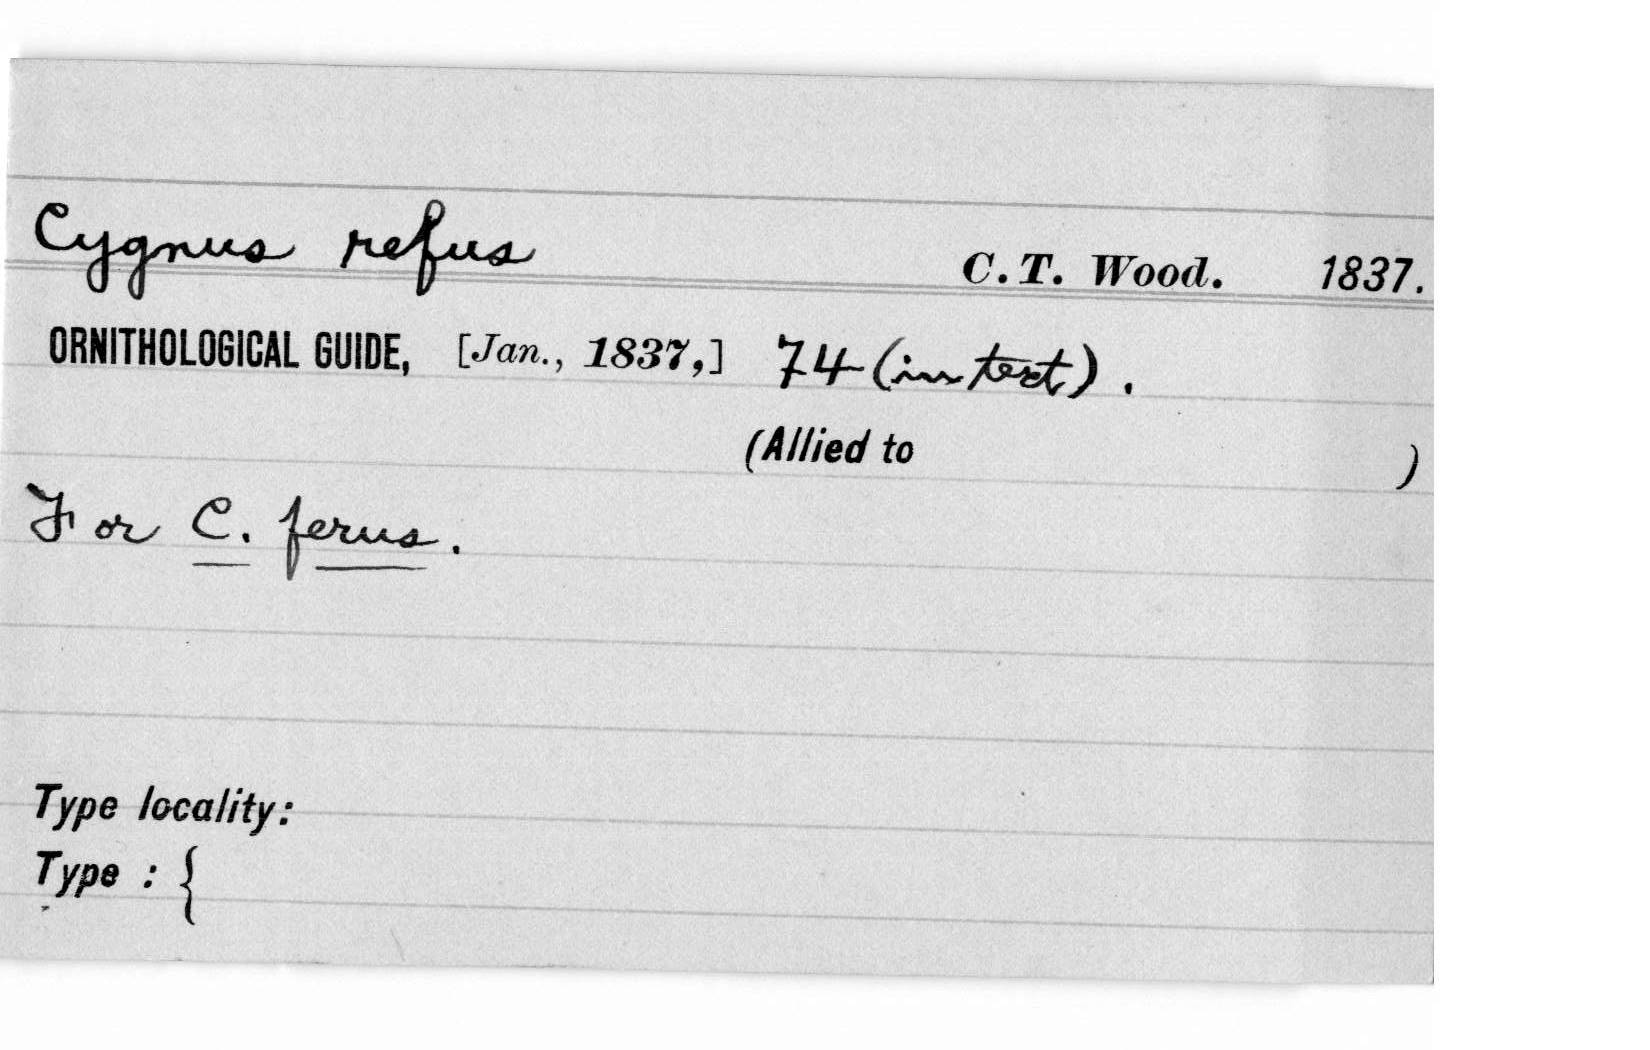 Cygnus refus C. T. Wood. 1837.
ORNITHOLOGICAL GUIDE, [Jan., 1837,] 74 (in text).
(Allied to )
For C. ferus.
Type locality:
Type : {